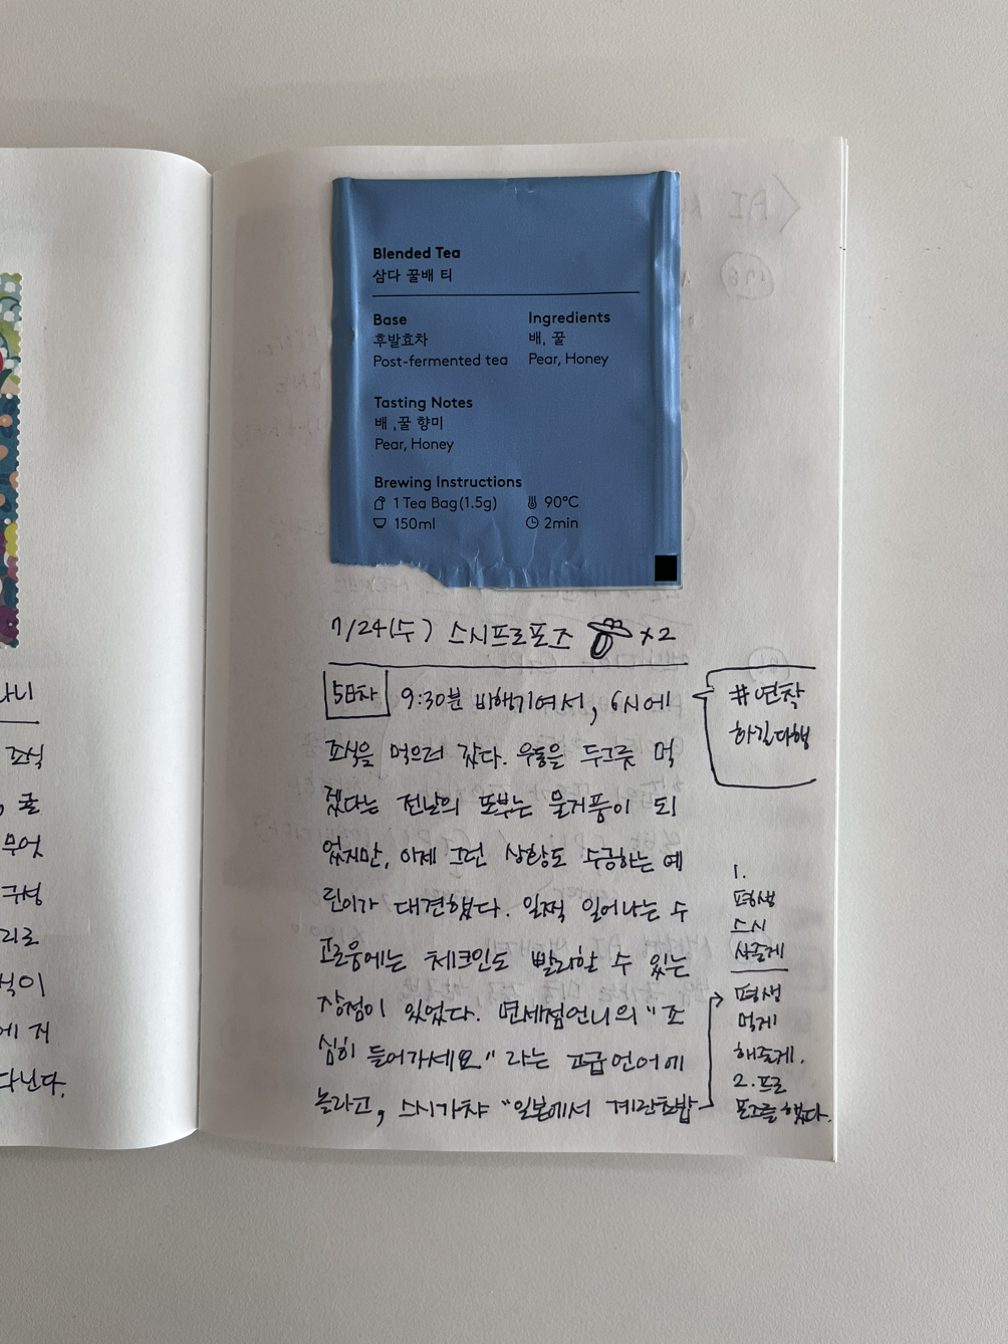 Blended Tea
삼다 꿀배 티
Base
후발효차
Post-fermented tea
Ingredients
배, 꿀
Pear, Honey
Tasting Notes
배 ,꿀 향미
Pear, Honey
Brewing Instructions
1 Tea Bag(1.5g)
90°C
150ml
2min
7/24(수) 스시프로포즈 x2
5일차 9:30분 비행기여서, 6시에
조식을 먹으러 갔다. 우동을 두그릇 먹
겠다는 전날의 포부는 물거품이 되
었지만, 이제 그런 상황도 수긍하는 예
린이가 대견했다. 일찍 일어나는 수
고로움에는 체크인도 빨리할 수 있는
장점이 있었다. 면세점언니의 "조
심히 들어가세요" 라는 고급언어에
놀라고, 스시가챠 "일본에서 계란초밥
#연착
하길다행
1.
평생
스시
사줄게
평생
먹게
해줄게.
2. 프로
포즈를 했다.
나니
조식
, 굴
무엇
구성
리로
식이
에 저
다닌다.